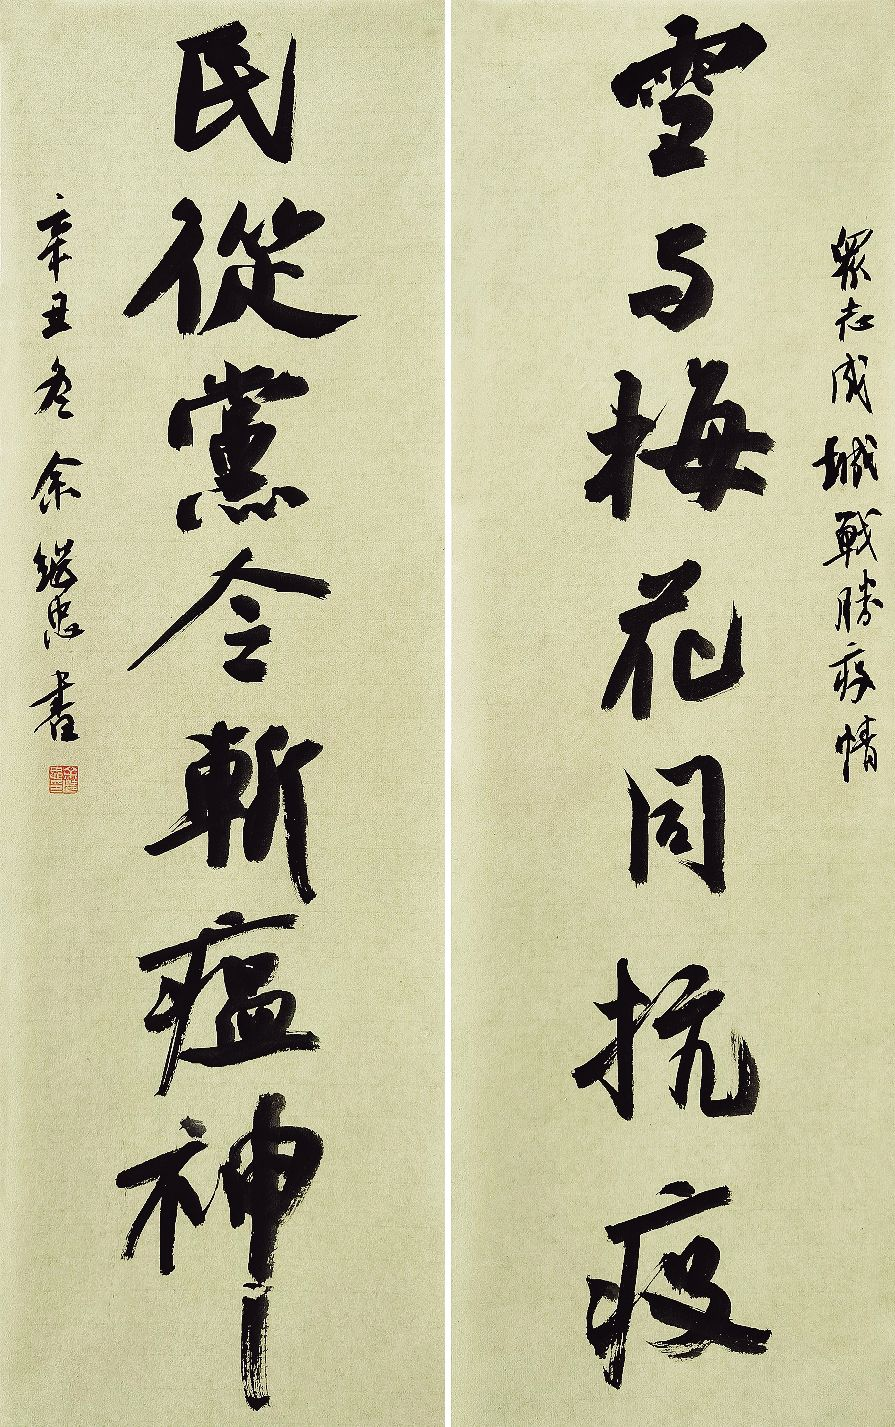 眾志成城戰勝疫情
雪与梅花同抗疫
民從黨令斬瘟神
辛丑冬余继忠書